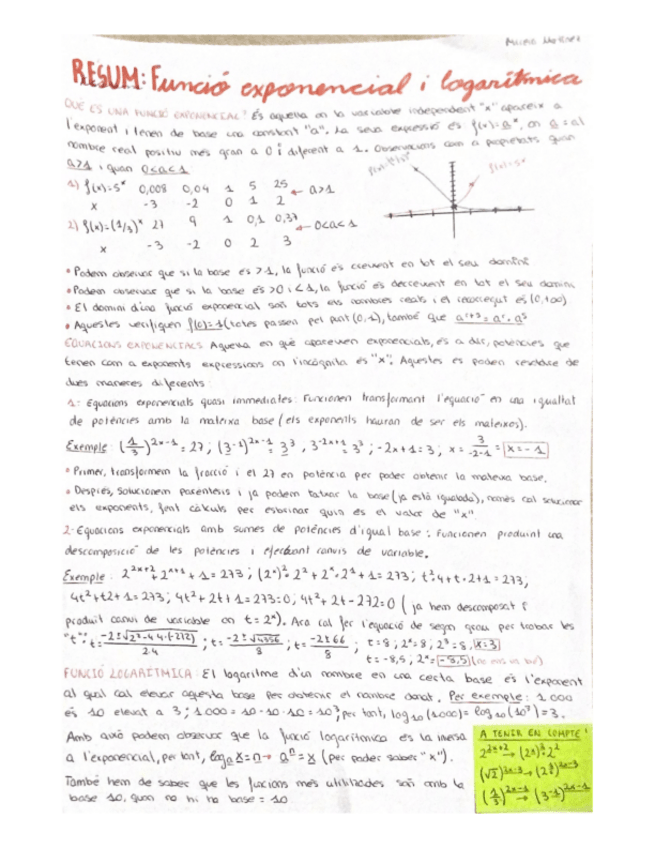 RESUM: Funció exponencial i logarítmica
QUE ES UNA FUNCIÓ EXPONENCIAL? És aquella on la variable independent "x" apareix a
l'exponent i tenen de base una constant "a". La seua expressió és f(x)=aˣ, on a = al
nombre real positiu més gran a 0 i diferent a 1. Observacions com a propietats quan
a>1 i quan 0<a<1
1) f(x)=5ˣ 0,008 0,04 1 5 25 ← a>1
x -3 -2 0 1 2
2) f(x)=(1/3)ˣ 27 9 1 0,1 0,37 ← 0<a<1
x -3 -2 0 2 3
• Podem observar que si la base és >1, la funció és creixent en tot el seu domini
• Podem observar que si la base és >0 i <1, la funció és decreixent en tot el seu domini
• El domini d'una funció exponencial són tots els nombres reals i el recorregut és (0,+∞)
• Aquestes verifiquen f(0)=1 (totes passen pel punt (0,1), també que
EQUACIONS EXPONENCIALS Aquella en què apareixen exponencials, és a dir, potències que
tenen com a exponents expressions on l'incògnita és "x". Aquestes es poden resoldre de
dues maneres diferents:
1: Equacions exponencials quasi immediates: Funcionen transformant l'equació en una igualtat
de potències amb la mateixa base (els exponents hauran de ser els mateixos).
Exemple: (1/3)²ˣ⁻¹ = 27; (3⁻¹)²ˣ⁻¹ = 3³, 3⁻²ˣ⁺¹ = 3³; -2x+1=3; x = 3/-2-1 = x=-1
• Primer, transformem la fracció i el 27 en potència per poder obtenir la mateixa base.
• Després, solucionem parèntesis i ja podem tatxar la base (ja està igualada), només cal solucionar
els exponents, fent càlculs per esbrinar quin és el valor de "x"
2-Equacions exponencials amb sumes de potències d'igual base: Funcionen produint una
descomposició de les potències i efectuant canvis de variable.
Exemple: 2²ˣ⁺² + 2ˣ⁺¹ + 1 = 273; (2ˣ)²·2² + 2ˣ·2¹ + 1 = 273; t²·4+t·2+1=273,
4t²+t2+1=273; 4t²+2t+1=273=0; 4t²+2t-272=0 (ja hem descomposat i
produït canvi de variable on t=2ˣ). Ara cal fer l'equació de segon grau per trobar les
"t": t= -2±√2²-4·4·(-272) / 2·4; t= -2±√4356 / 8; t= -2±66 / 8; t=8; 2ˣ=8; 2³=8, x=3
t=-8,5; 2ˣ= -8,5
FUNCIÓ LOGARITMICA: El logaritme d'un nombre en una certa base és l'exponent
al qual cal elevar aquesta base per obtenir el nombre donat. Per exemple: 1000
és 10 elevat a 3; 1000=10·10·10=10³, per tant, log₁₀(1000)=log₁₀(10³)=3.
Amb això podem observar que la funció logarítmica és la inversa
a l'exponencial, per tant, logₐx=n→ aⁿ=x (per poder saber "x").
També hem de saber que les funcions més utilitzades són amb la
base 10, quan no hi ha base = 10
A TENIR EN COMPTE!
2²ˣ⁺² → (2ˣ)²·2²
(1/3)²ˣ⁻¹ → (3⁻¹)²ˣ⁻¹